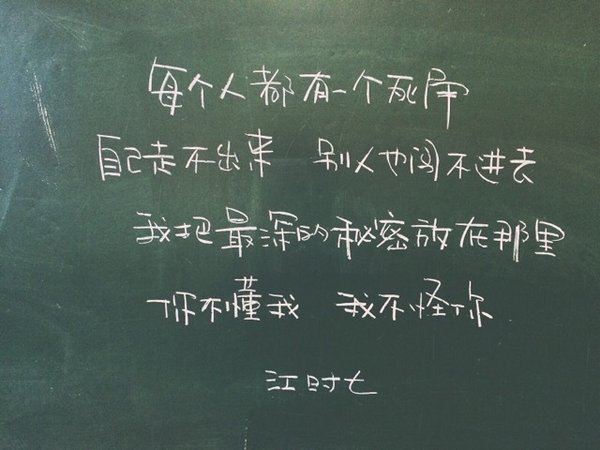 每个人都有一个死角
自己走不出来 别人也闯不进去
我把最深的秘密放在那里
你不懂我 我不怪你
江时七